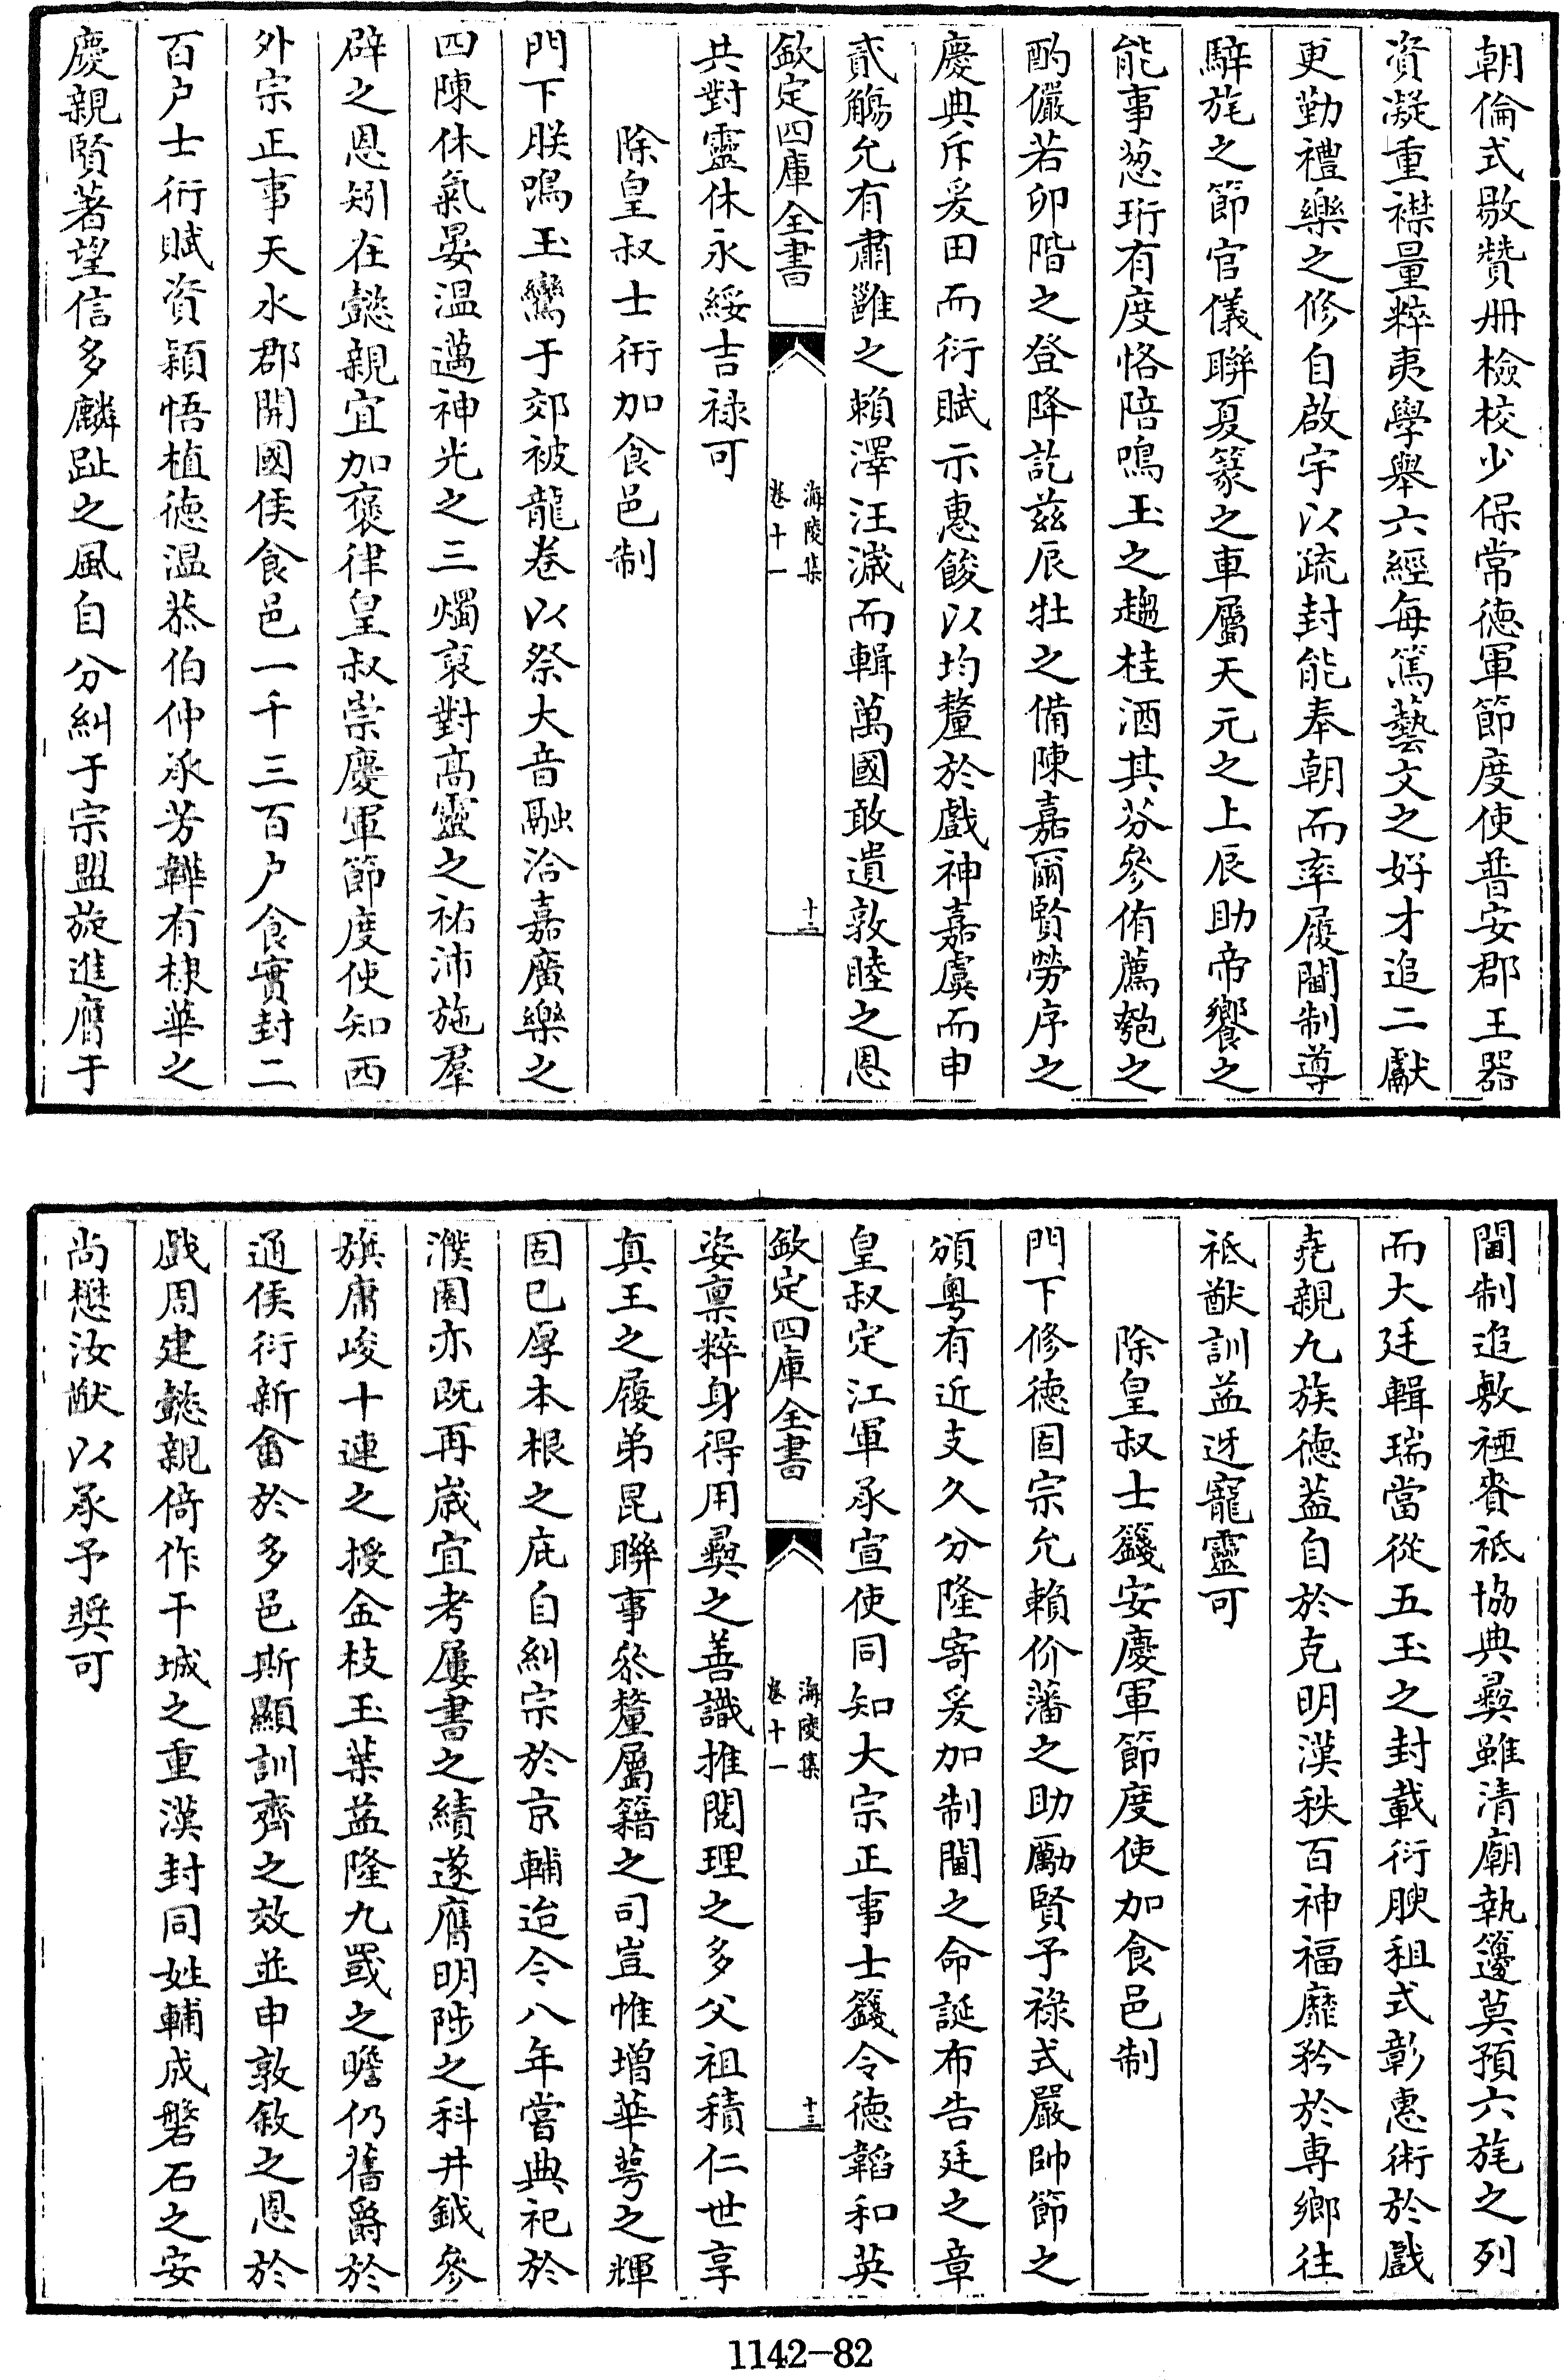 朝倫式敭贊册檢校少保常徳軍節度使普安郡王器
資凝重襟量粹夷學舉六經每篤藝文之好才追二獻
更勤禮樂之修自啟宇以疏封能奉朝而率履閫制導
騂旄之節官儀聯夏篆之車屬天元之上辰助帝饗之
能事葱珩有度恪陪鳴玉之趨桂酒其芬參侑薦匏之
酌儼若卯階之登降訖兹辰牡之備陳嘉爾賢勞序之
慶典斥爰田而衍賦示惠餕以均釐於戲神嘉虞而申
貳觴允有肅雝之賴澤汪濊而輯萬國敢遺敦睦之恩
欽定四庫全書
海陵集
卷十一
十二
共對靈休永綏吉禄可
除皇叔士術加食邑制
門下朕鳴玉鸞于郊被龍卷以祭大音融洽嘉廣樂之
四陳休氣晏温邁神光之三燭裒對髙靈之祐沛施羣
辟之恩矧在懿親宜加褒律皇叔崇慶軍節度使知西
外宗正事天水郡開國侯食邑一千三百户食實封二
百户士術賦資穎悟植徳温恭伯仲承芳韡有棣華之
慶親賢著望信多麟趾之風自分糾于宗盟旋進膺于
閫制追敷禋賚祗協典彞雖清廟執籩莫預六旄之列
而大廷輯瑞當從五玉之封載衍腴租式彰惠術於戲
堯親九族徳葢自於克明漢秩百神福靡矜於専鄉往
祗猷訓益迓寵靈可
除皇叔士籛安慶軍節度使加食邑制
門下修徳固宗允賴价藩之助勵賢予祿式嚴帥節之
頒粤有近支久分隆寄爰加制閫之命誕布告廷之章
皇叔定江軍承宣使同知大宗正事士籛令徳韜和英
欽定四庫全書
海陵集
卷十一
十三
姿稟粹身得用彞之善識推閲理之多父祖積仁世享
真王之履弟昆聯事叅釐屬籍之司豈惟増華萼之輝
固已厚本根之庇自糾宗於京輔迨今八年嘗典祀於
濮園亦既再嵗宜考屢書之績遂膺明陟之科井鉞參
旗庸峻十連之授金枝玉葉益隆九罭之瞻仍舊爵於
通侯衍新畬於多邑斯顯訓齊之效並申敦敘之恩於
戲周建懿親倚作干城之重漢封同姓輔成磐石之安
尚懋汝猷以承予奬可
1142-82